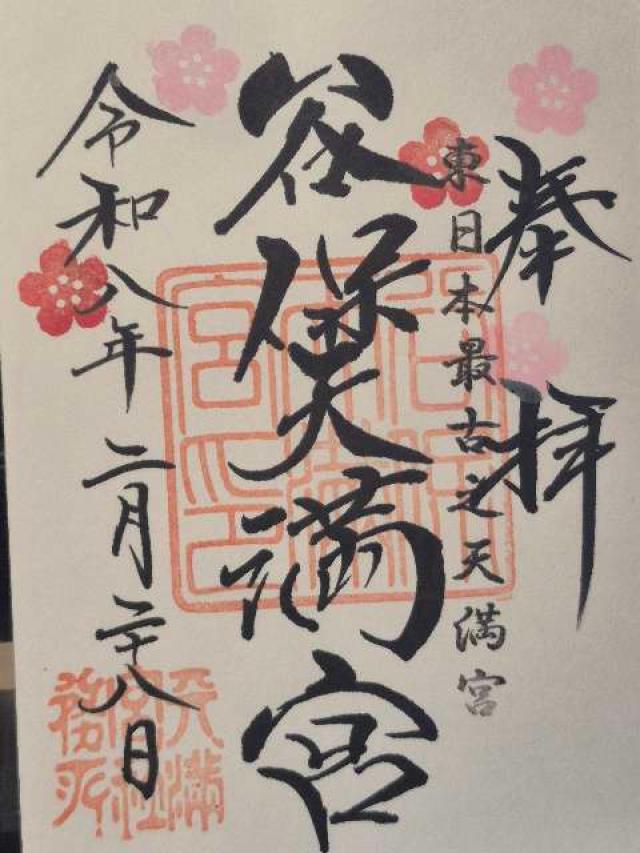 奉拝
東日本最古之天満宮
谷保天満宮
令和八年二月二十八日
天満
宮社
務所